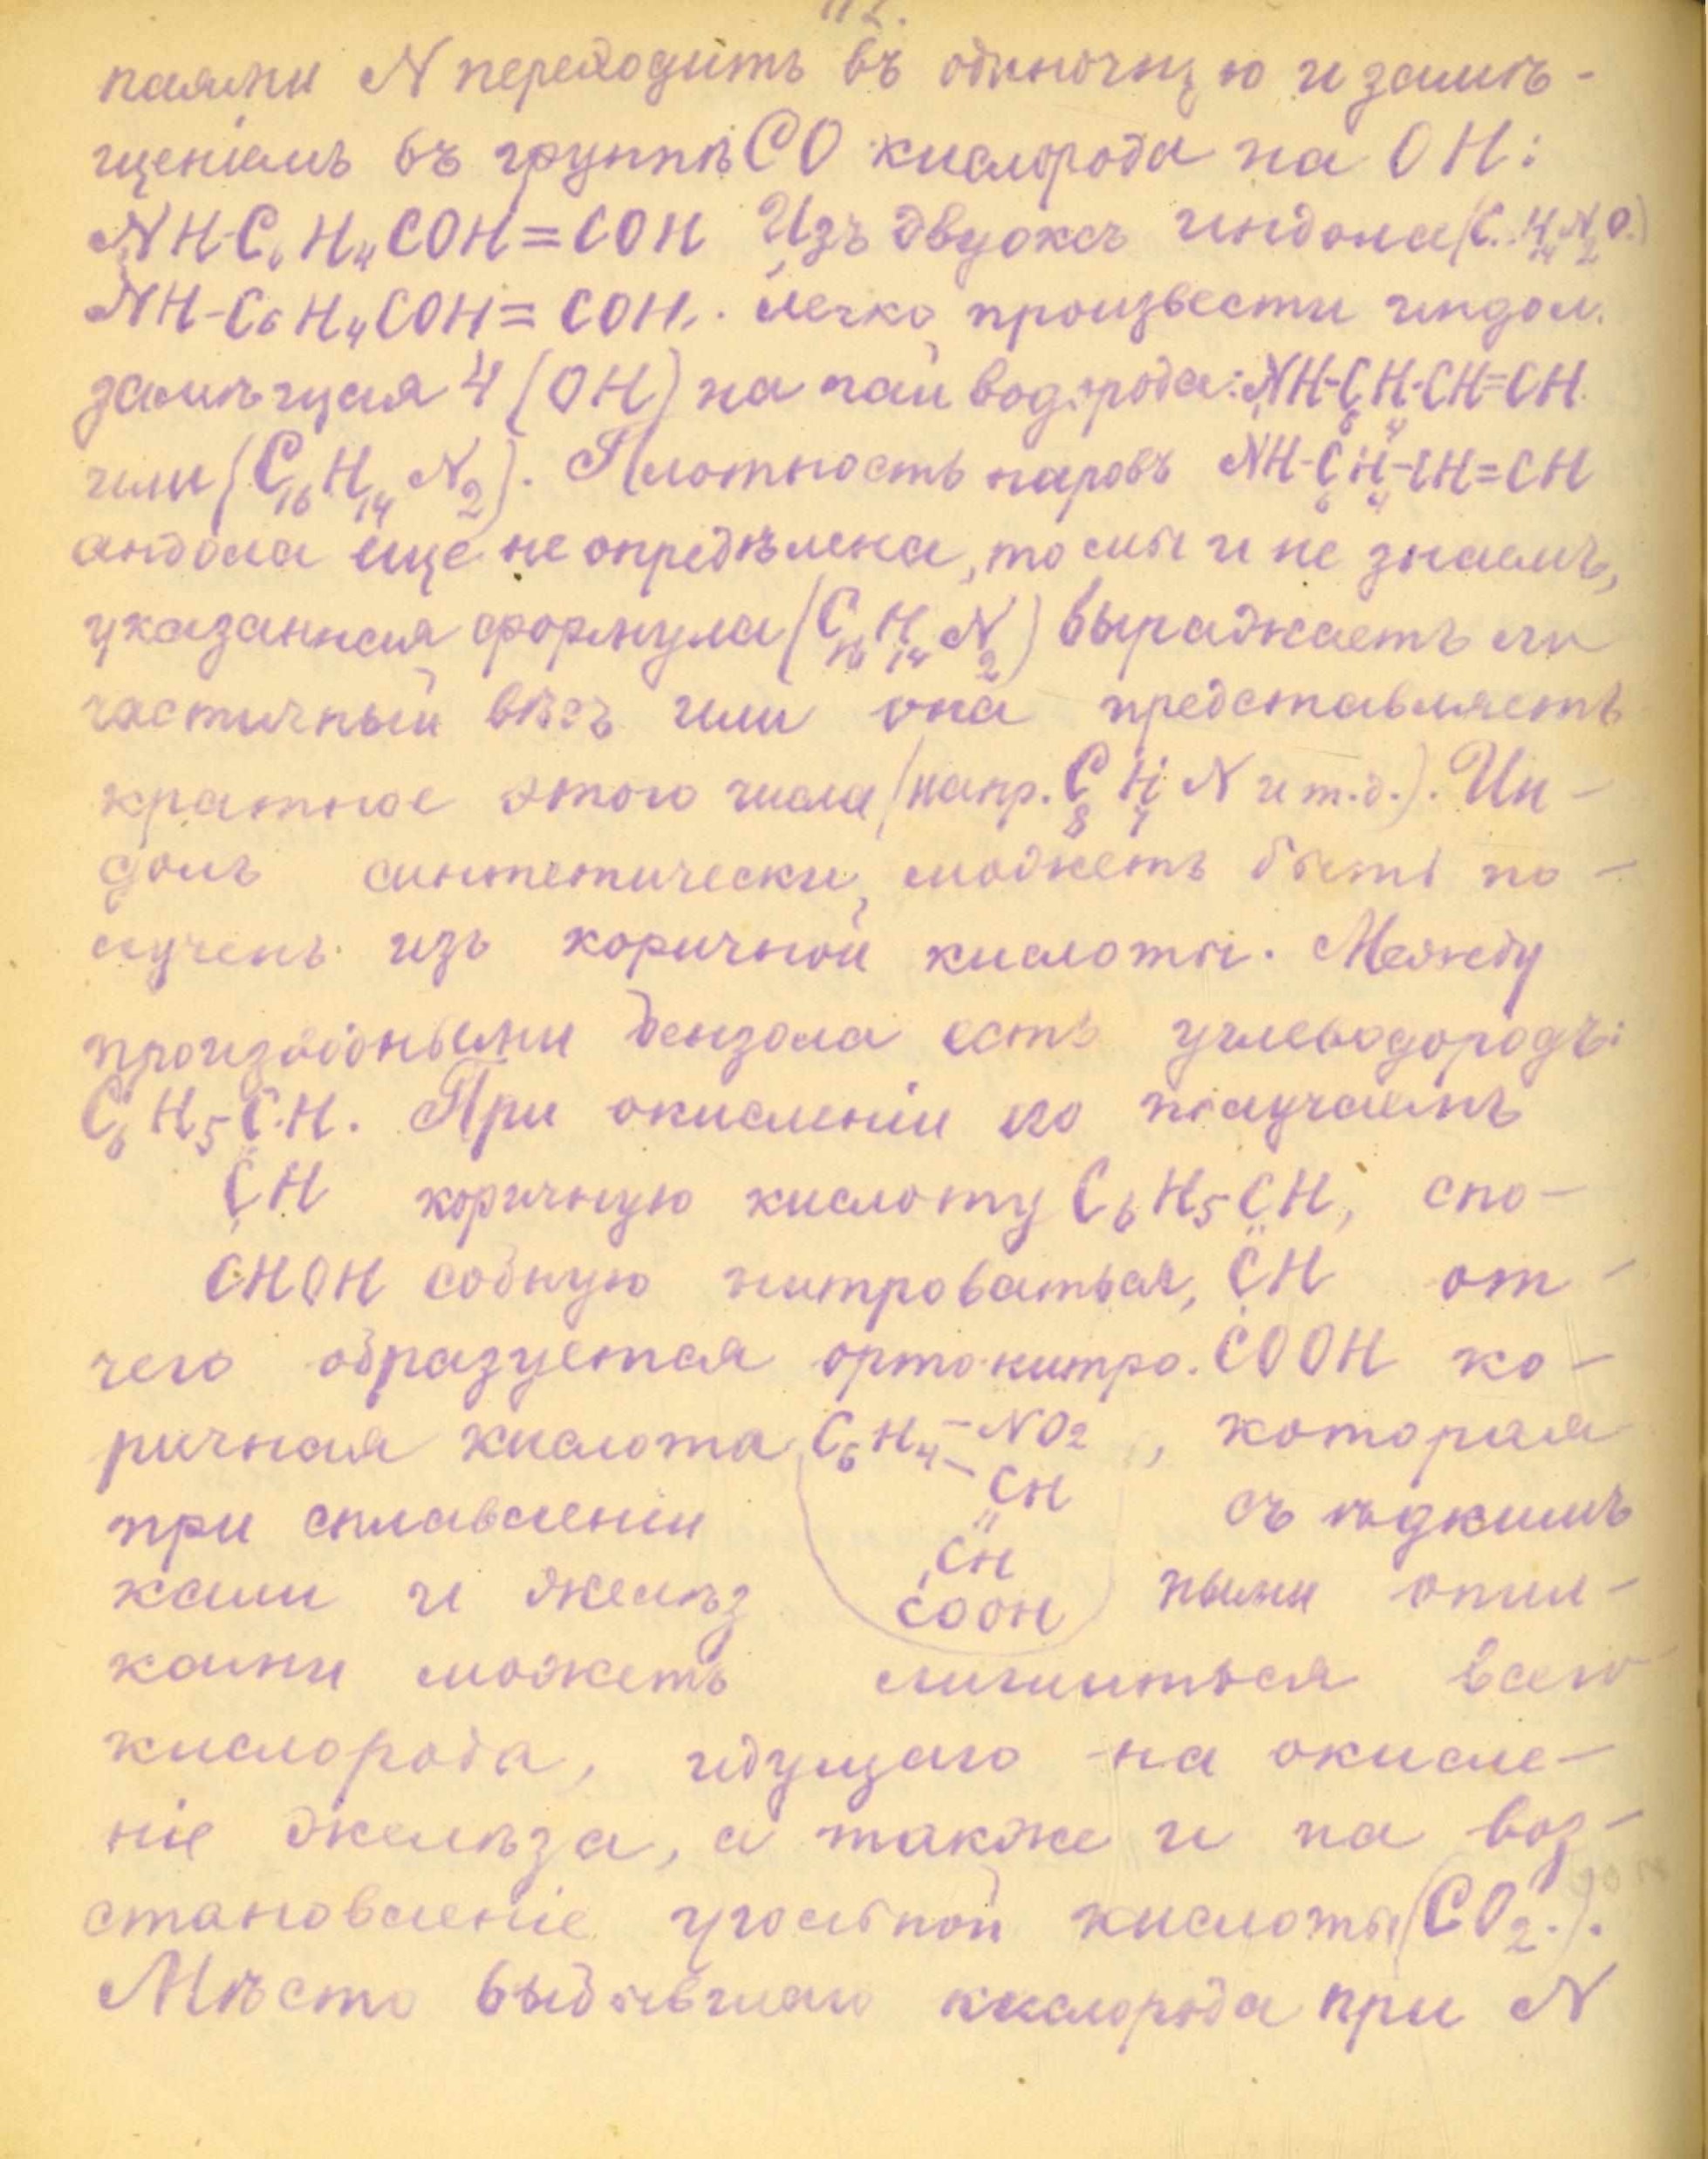 паями N переходитъ въ одиночную и замѣ-
щеніемъ въ группѣ CO кислорода на OH:
NH-C₆H₄COH=COH Изъ двуокси индола (C₁₆H₁₄N₂O₄)
NH-C₆H₄COH=COH. легко произвести индол.
замѣщая 4 (OH) на паи водорода: NH-C₆H₄-CH=CH
или (C₁₆H₁₄N₂). Плотность паровъ NH-C₆H₄-CH=CH
индола еще не опредѣлена, то мы и не знаемъ,
указанная формула (C₁₆H₁₄N₂) выражаетъ ли
частичный вѣсъ или она представляетъ
кратное этого числа (напр. C₈H₇N и т.д.). Ин-
долъ синтетически можетъ быть по-
лученъ изъ коричной кислоты. Между
производными бензола есть углеводородъ:
C₆H₅-CH. При окисленіи его получаемъ
CH коричную кислоту C₆H₅CH, спо-
CHOH собную нитроваться, CH от-
чего образуется орто-нитро. COOH ко-
ричная кислота C₆H₄-NO₂, которая
CH
при сплавленіи съ ѣдкимъ
CH
кали и желѣз COOH ными опил-
ками можетъ лишиться всего
кислорода, идущаго на окисле-
ніе желѣза, а также и на воз-
становленіе угольной кислоты (CO₂.).
Мѣсто выбывшаго кислорода при N